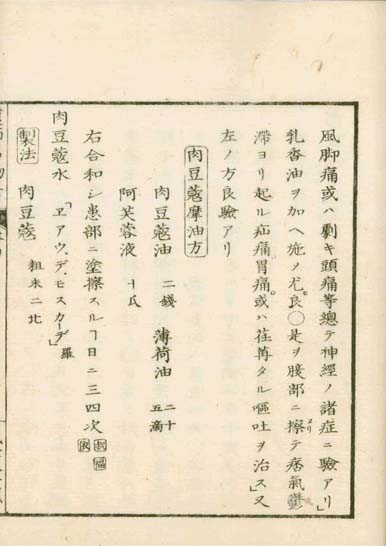 風脚痛或ハ劇キ頭痛等總テ神經ノ諸症ニ驗アリ」
乳香油ヲ加ヘ施ノ尤良○是ヲ腹部ニ擦テ痞氣鬱
滞ヨリ起ル疝痛胃痛或ハ荏苒タル嘔吐ヲ治ス」又
左ノ方良驗アリ
肉豆蔲摩油方
肉豆蔲油 二錢 薄荷油 二十五滴
阿芙蓉液
右合和シ患部ニ塗擦スルヿ日ニ三四次
肉豆蔲水 「ヱアウ、デ、モスカーデ」羅
製法 肉豆蔲 粗末二